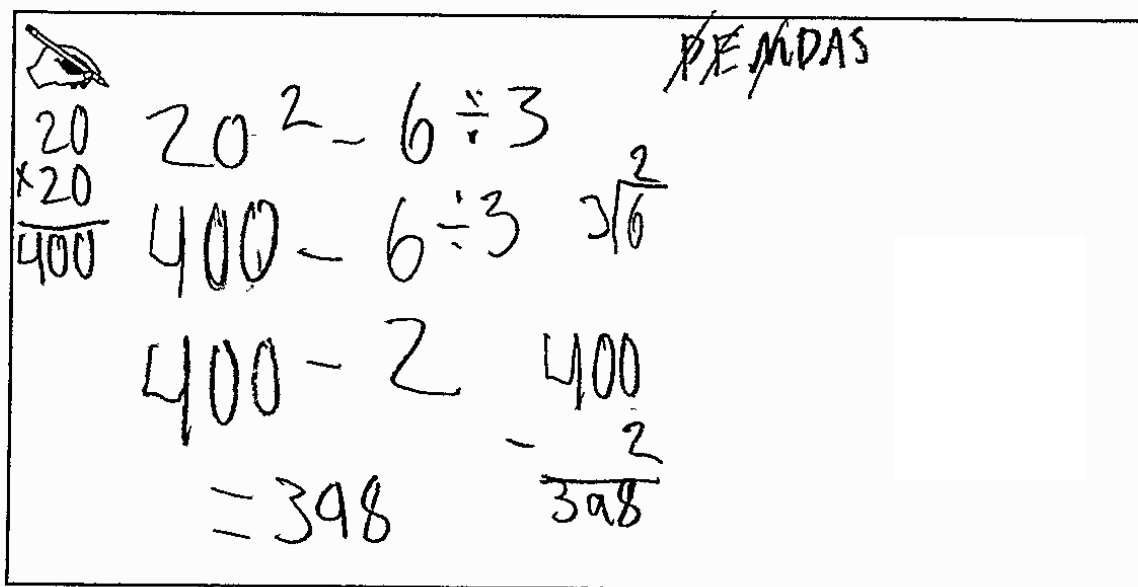 PEMDAS
20
×20
400
20² - 6 ÷ 3
400 - 6 ÷ 3
2
3√6
400 - 2
400
- 2
398
= 398